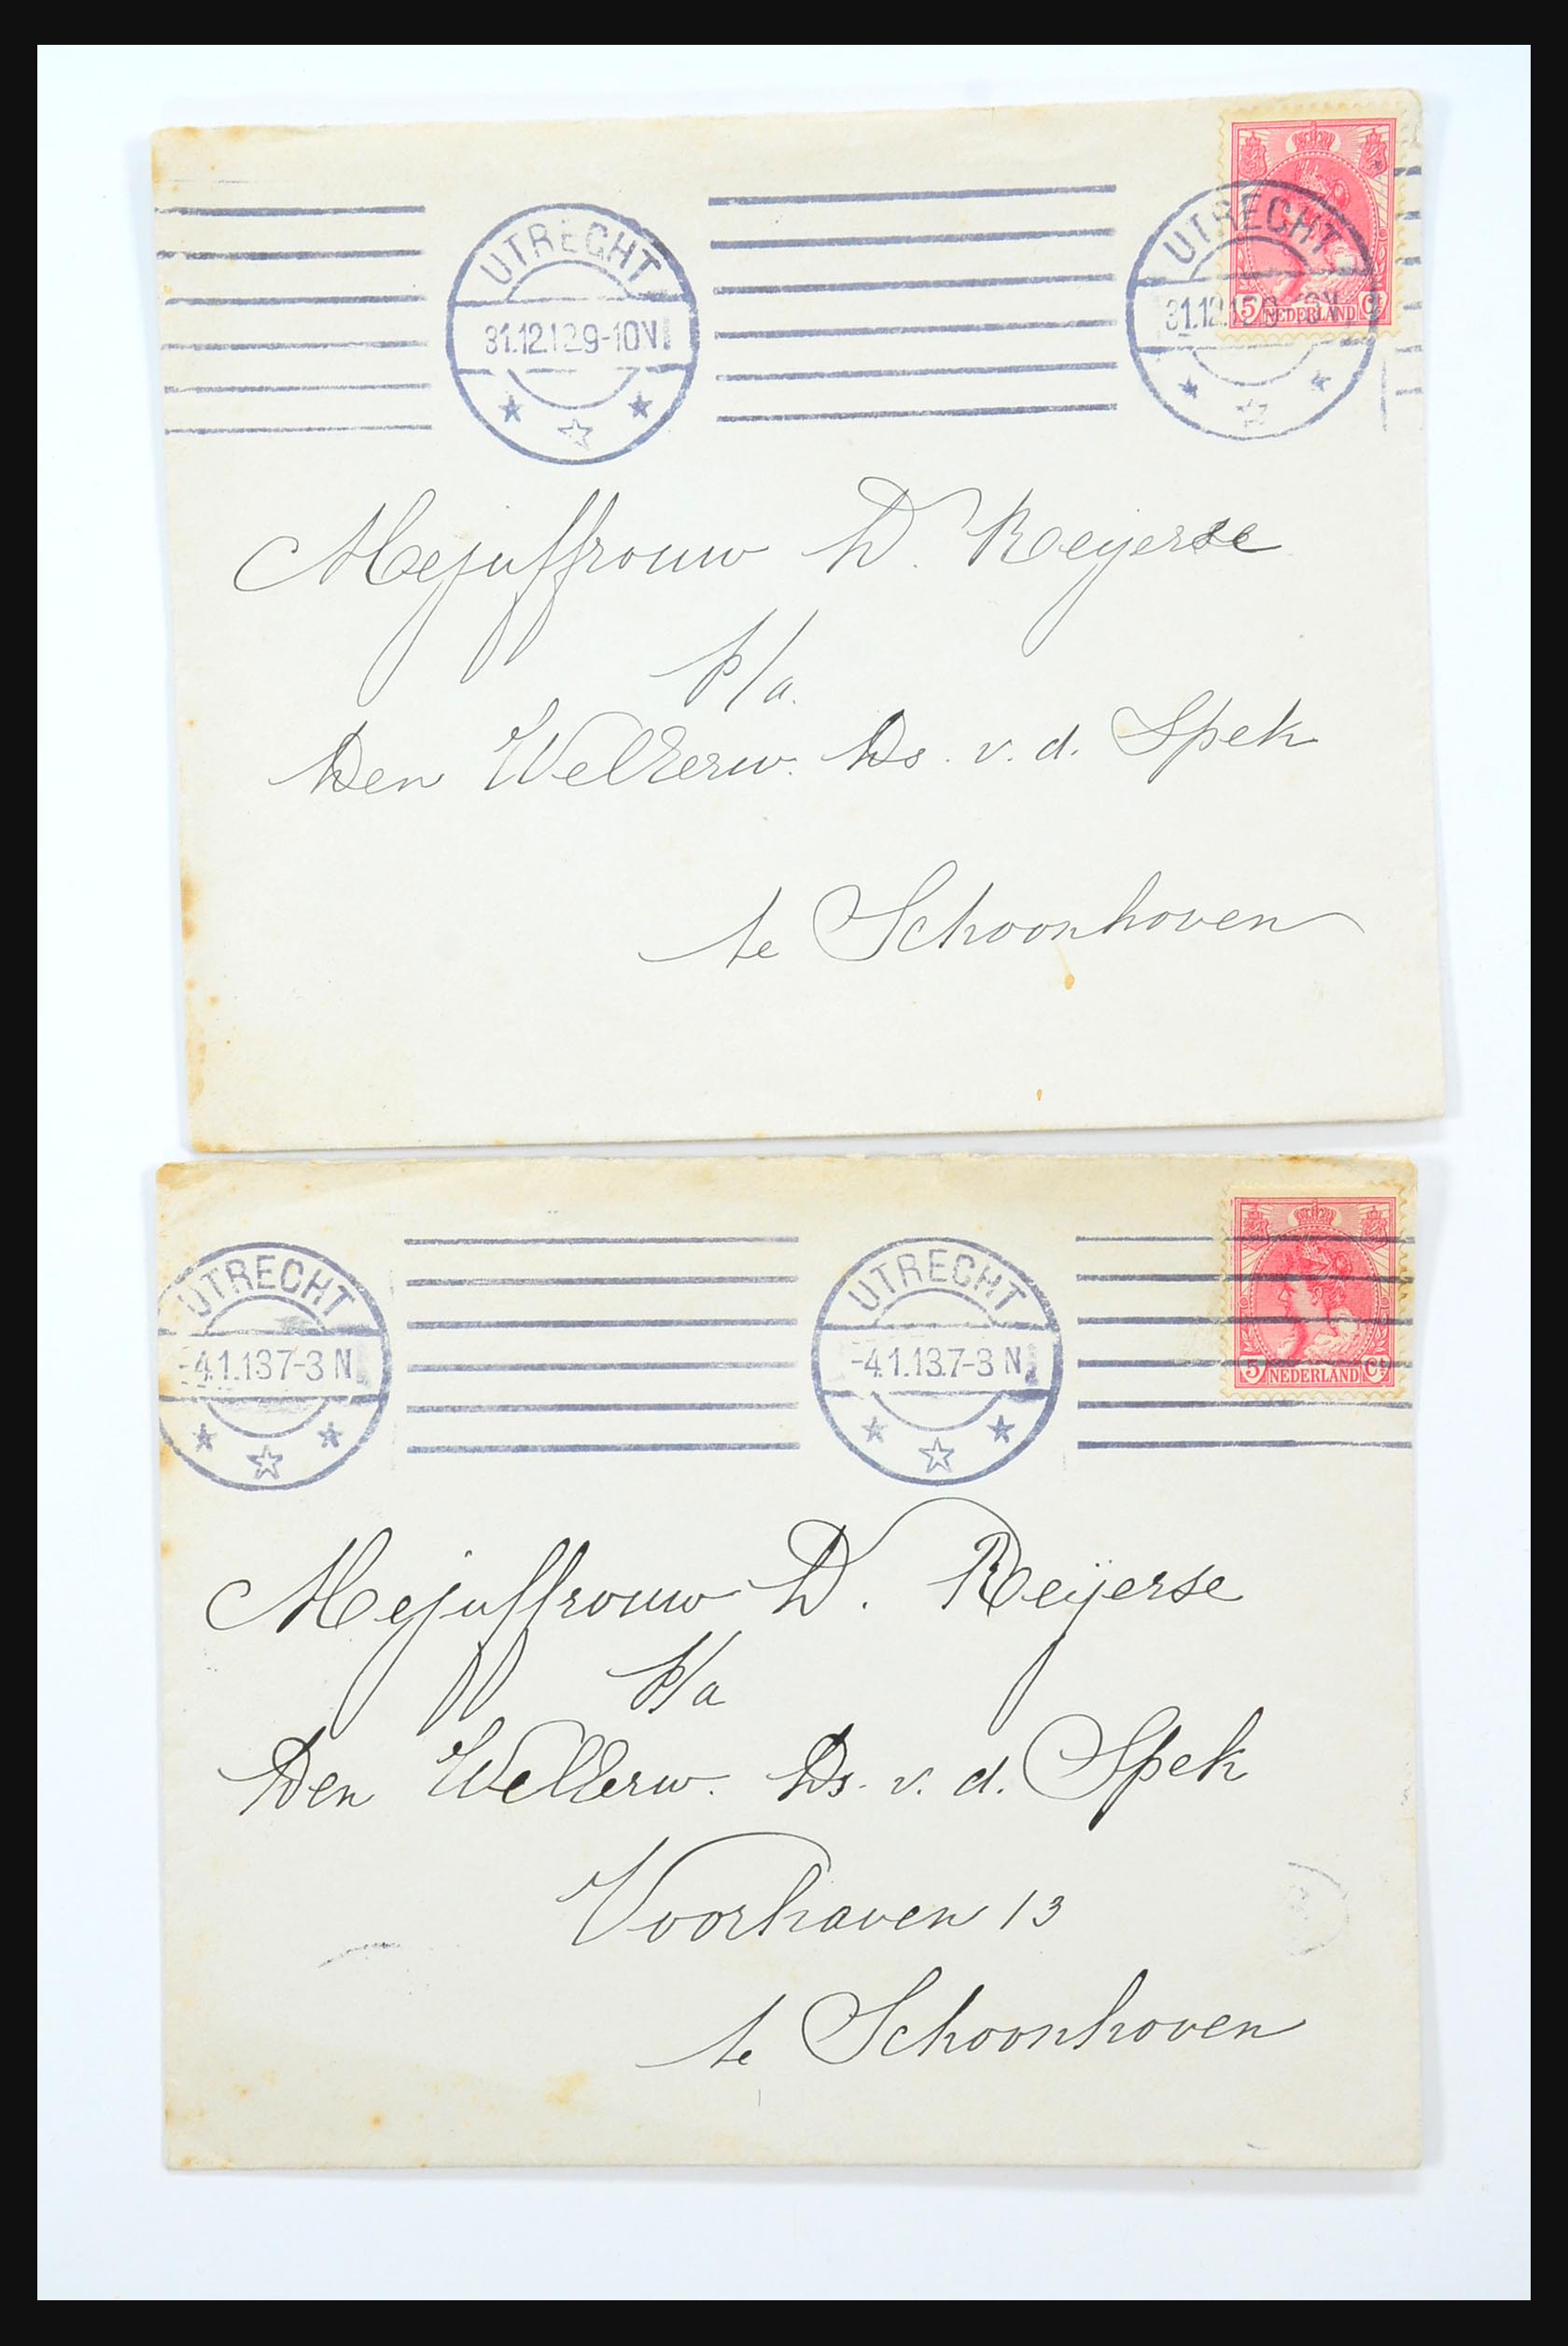 UTRECHT
31.12.12 9-10V
UTRECHT
31.12.12
5 NEDERLAND Ct
Mejuffrouw D. Reijerse
p/a.
Den WelEerw. Ds. v. d. Spek
te Schoonhoven
UTRECHT
-4.1.13.7-3 N
UTRECHT
-4.1.13.7-3 N
5 NEDERLAND Ct
Mejuffrouw D. Reijerse
p/a
Den WelEerw. Ds. v. d. Spek
Voorhaven 13
te Schoonhoven